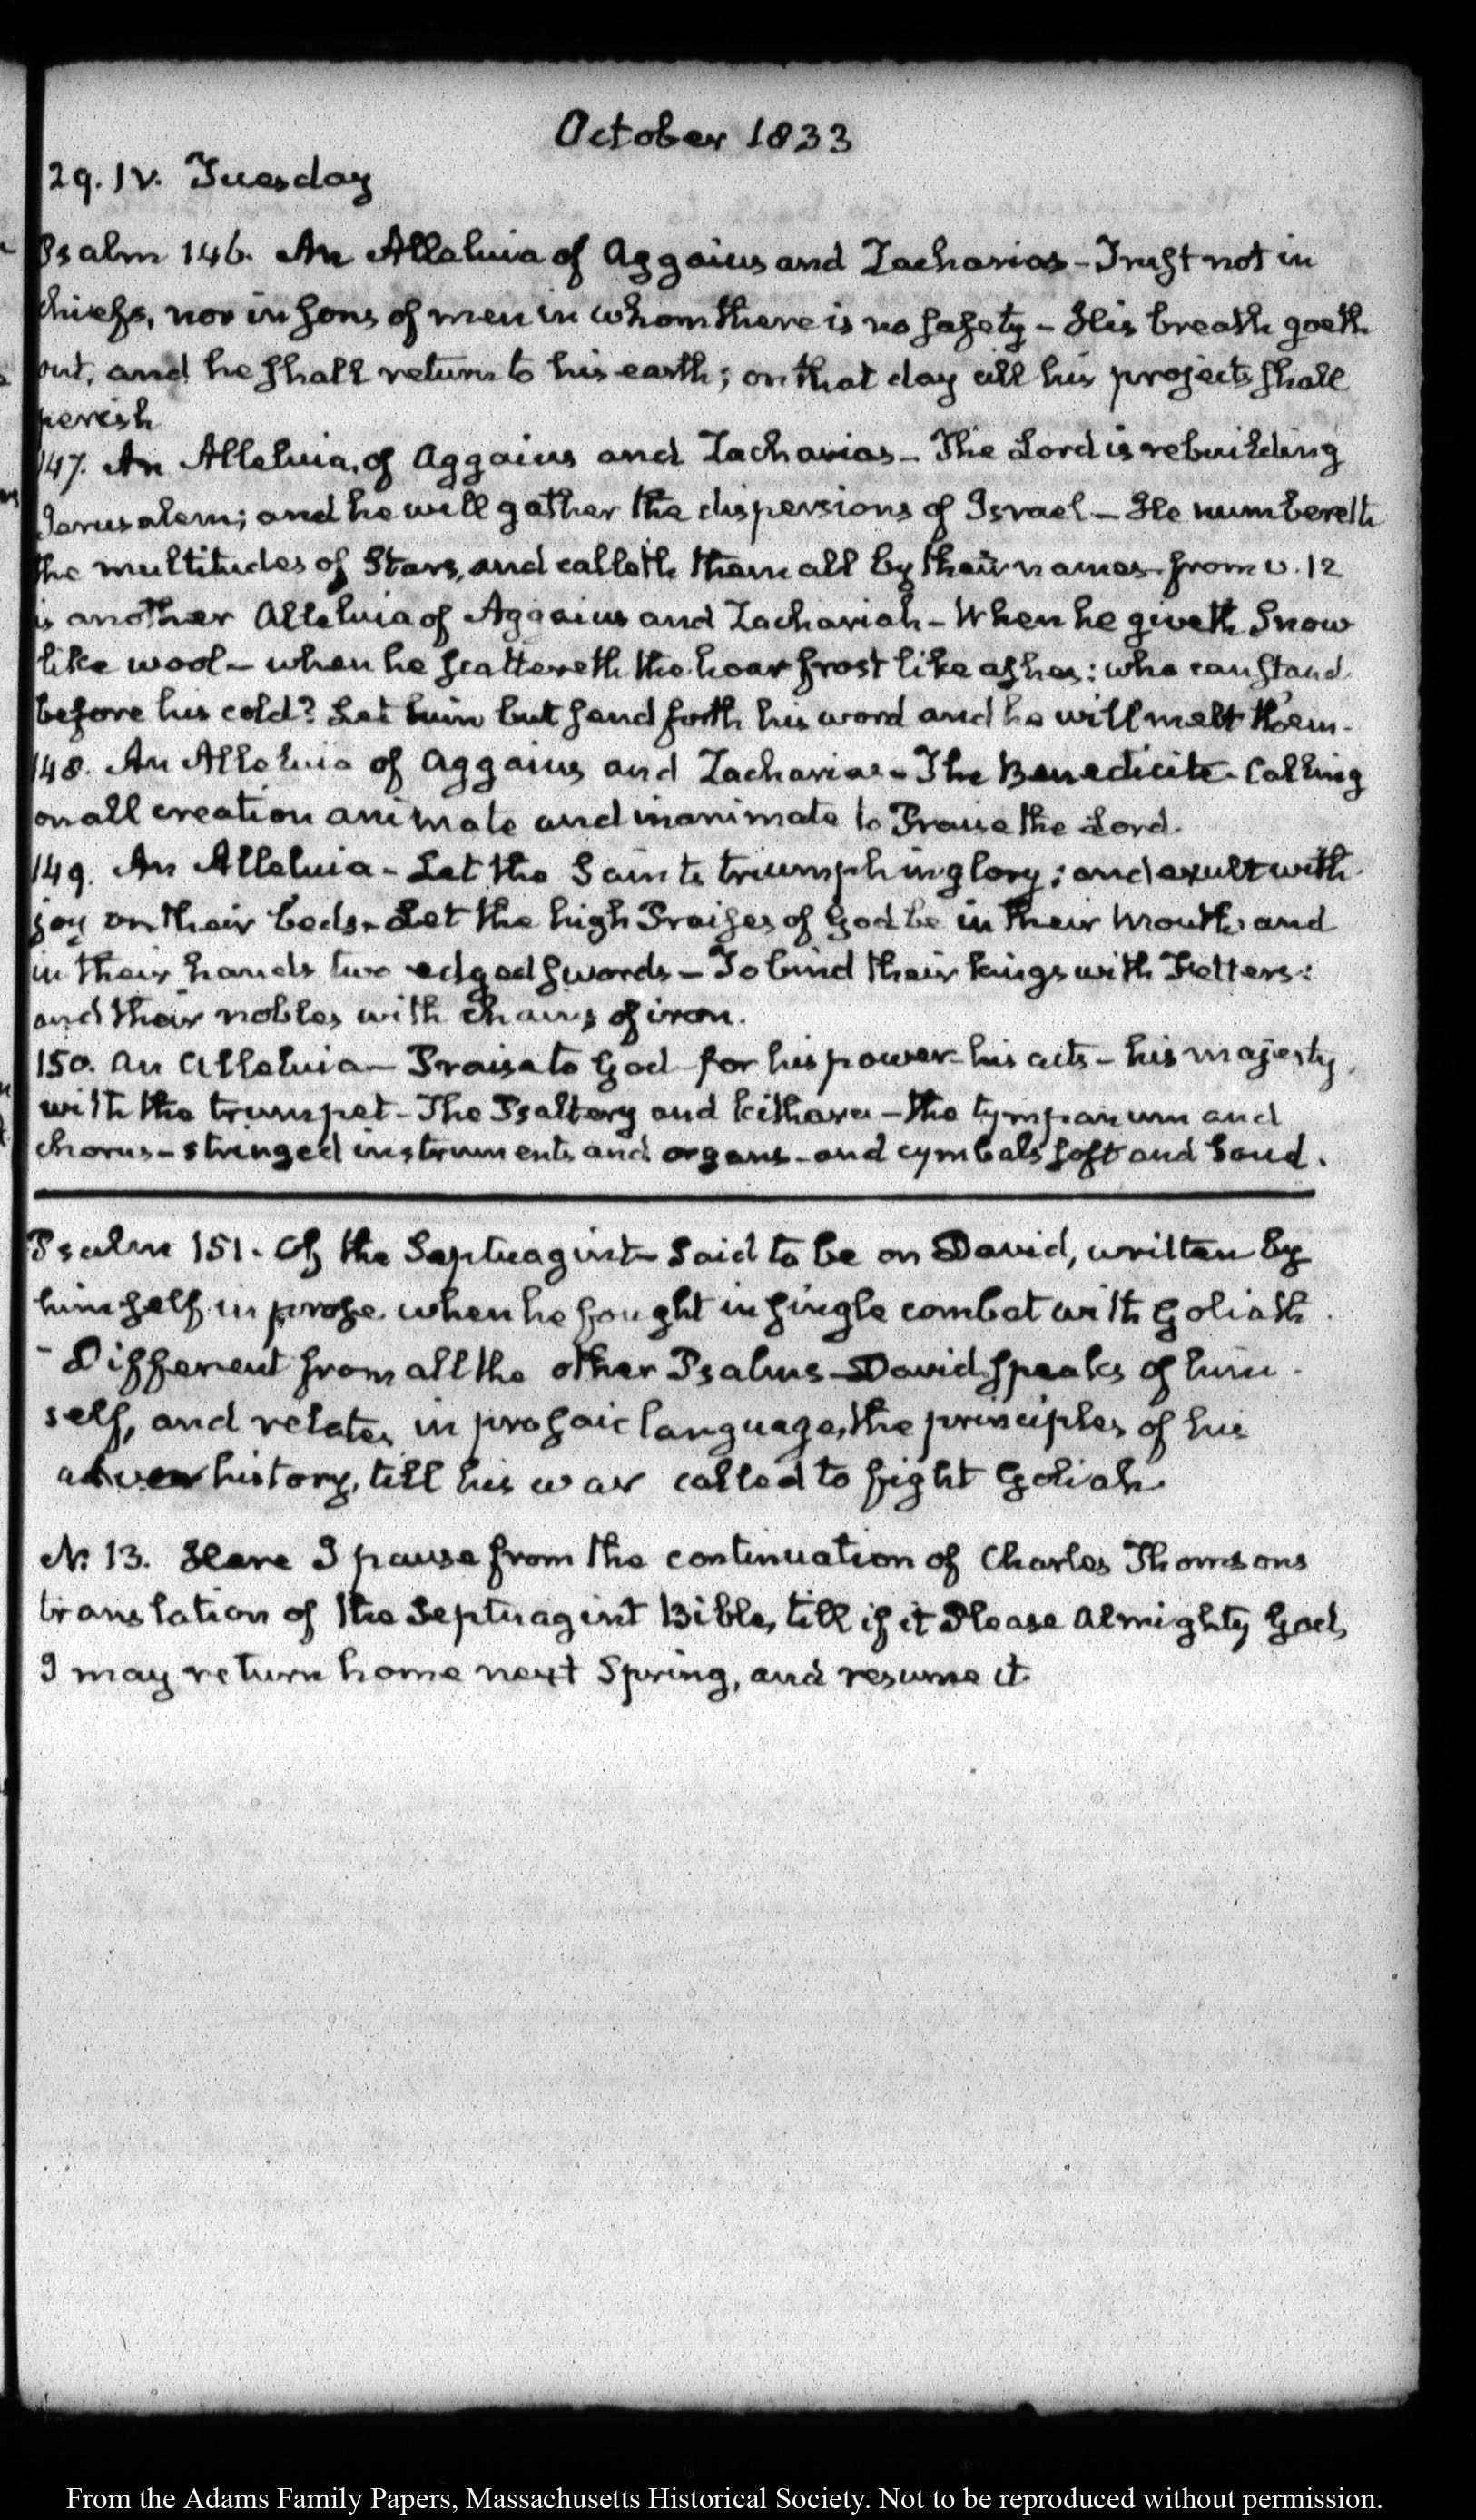 October 1833
29. IV. Tuesday
Psalm 146. An Alleluia of Aggaius and Zacharias - Trust not in
chiefs, nor in sons of men in whom there is no safety - His breath goeth
out, and he shall return to his earth; on that day all his projects shall
perish
147. An Alleluia, of Aggaius and Zacharias - The Lord is rebuilding
Jerusalem; and he will gather the dispersions of Israel - He numbereth
the multitudes of Stars, and calleth them all by their names. from v. 12
is another Alleluia of Aggaius and Zachariah - When he giveth Snow
like wool - when he scattereth the hoar frost like ashes: who can stand
before his cold? Let him but send forth his word and he will melt them.
148. An Alleluia of Aggaius and Zacharias - The Benedicite. Calling
on all creation animate and inanimate to Praise the Lord.
149. An Alleluia - Let the Saints triumph in glory; and exult with
joy on their beds. Let the high Praises of God be in their mouths and
in their hands two edged swords - To bind their kings with Fetters:
and their nobles with chains of iron.
150. An Alleluia - Praise to God for his power - his acts - his majesty,
with the trumpet - The Psaltery and kithara - the tympanum and
chorus - stringed instruments and organs - and cymbals soft and loud.
Psalm 151. Of the Septuagint - Said to be on David, written by
himself in prose when he fought in single combat with Goliath.
- Different from all the other Psalms - David speaks of him-
self, and relates in prosaic language, the principles of his
history, till his war called to fight Goliah.
N. 13. Here I pause from the continuation of Charles Thomsons
translation of the Septuagint Bible, till if it Please Almighty God,
I may return home next Spring, and resume it
From the Adams Family Papers, Massachusetts Historical Society. Not to be reproduced without permission.